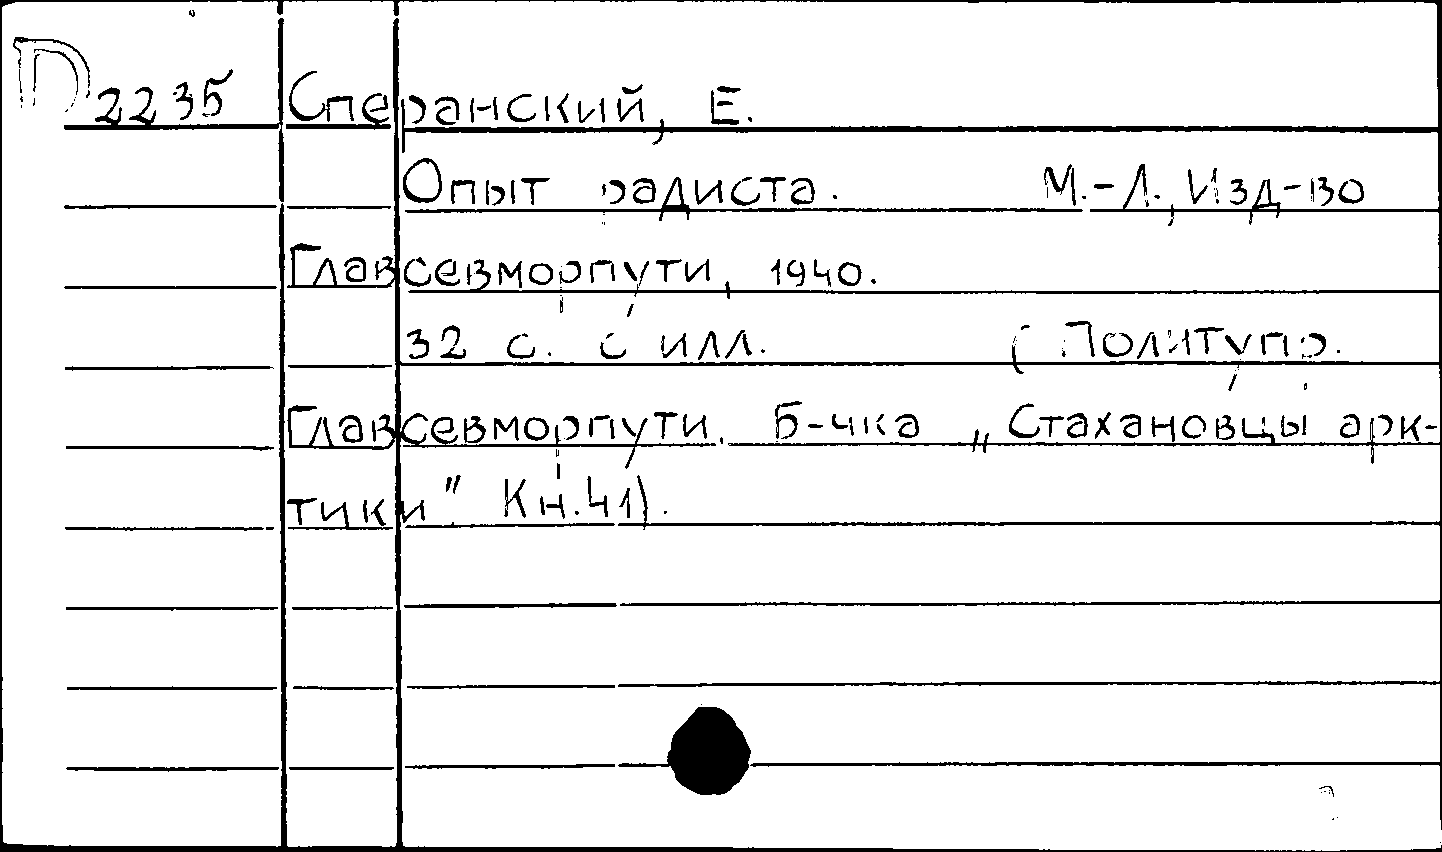 D2235 Сперанский, Е.
Опыт радиста. М.-Л., Изд-во
Главсевморпути, 1940.
32 с. с илл. (Политупр.
Главсевморпути. Б-чка „Стахановцы арк-
тики". Кн.41).